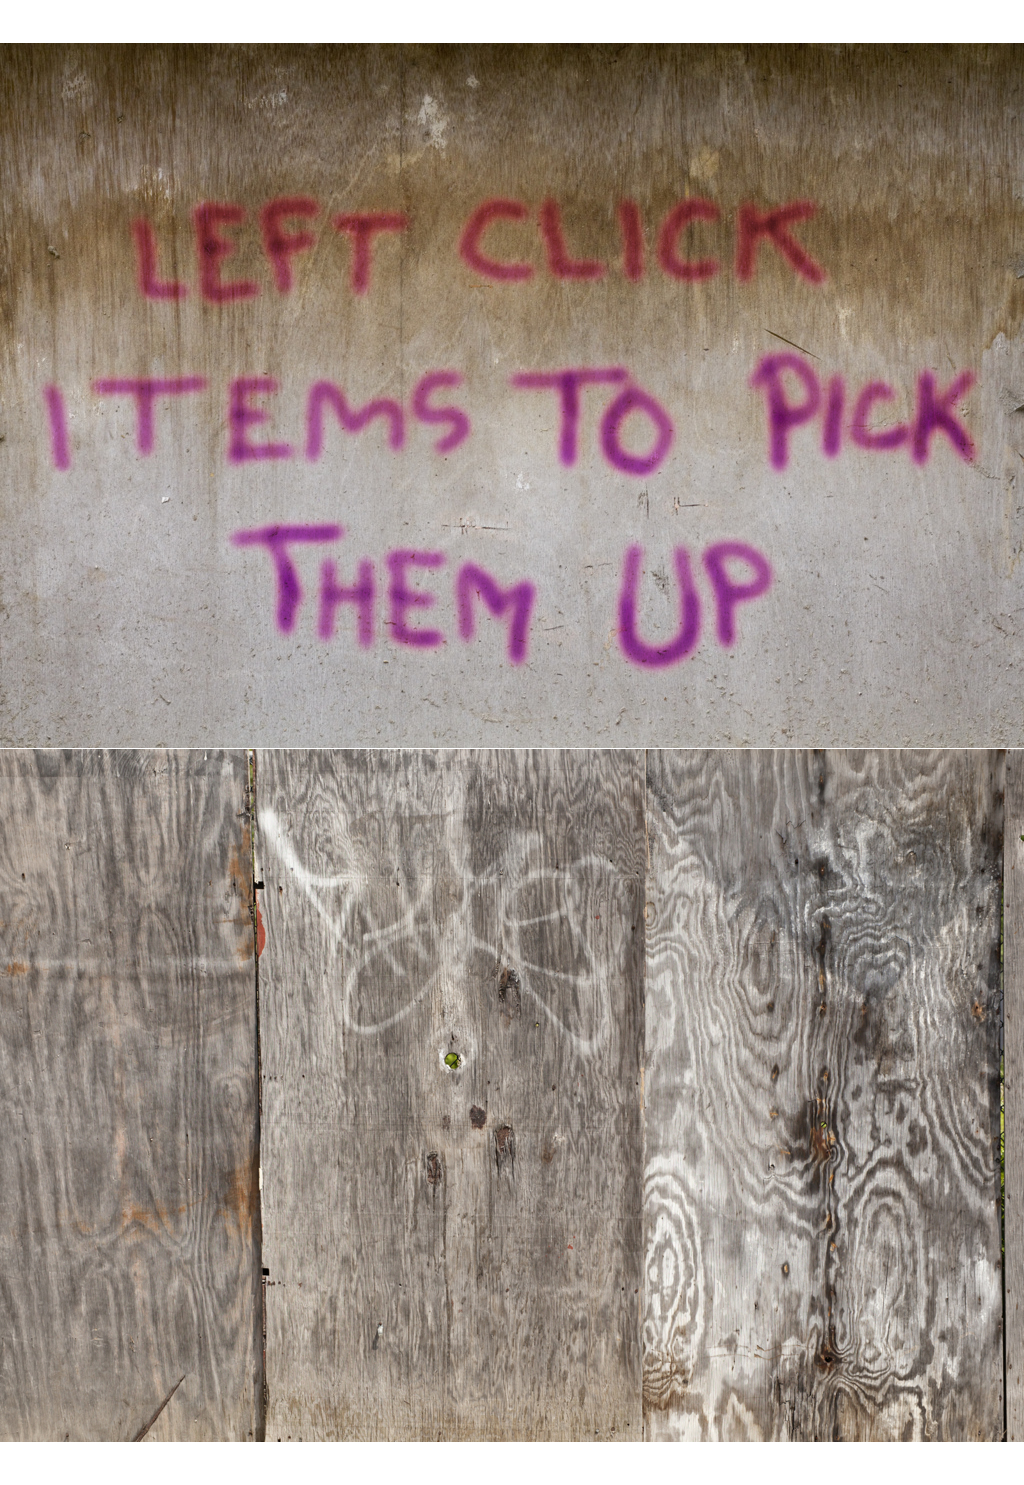 LEFT CLICK
ITEMS TO PICK
THEM UP